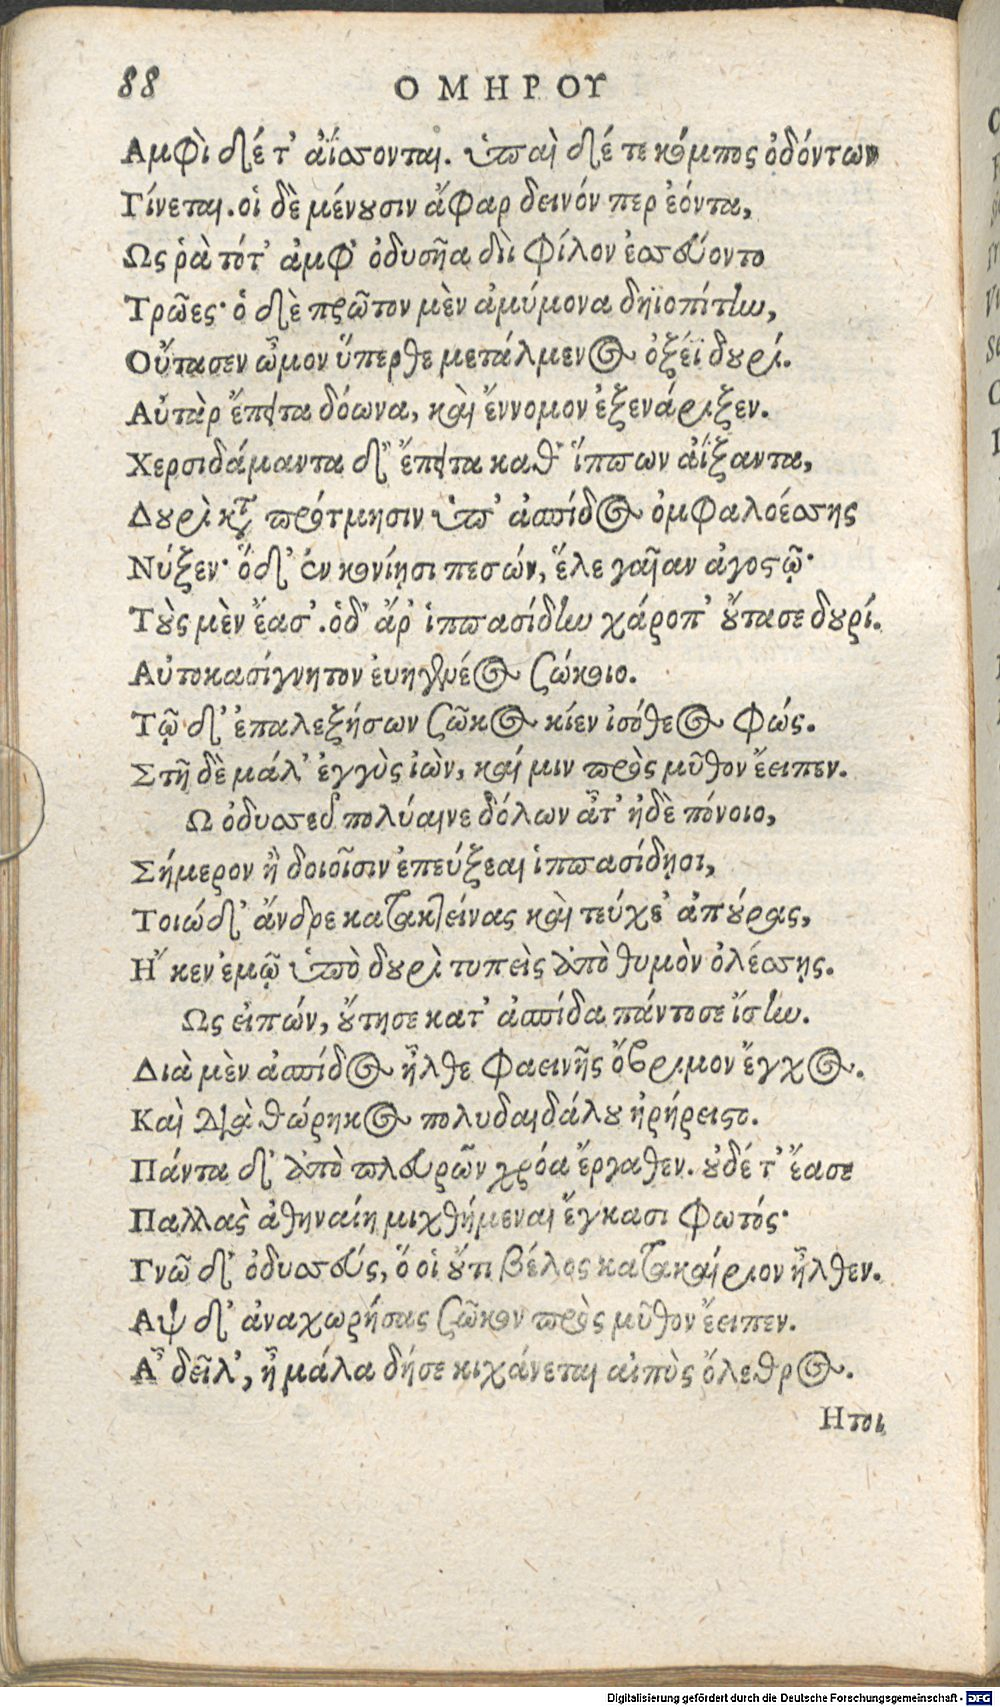 88 ΟΜΗΡΟΥ
Αμφὶ δέ τ' ἀΐσσονται. ὑπαὶ δέ τε κόμπος ὀδόντων
Γίνεται. οἱ δὲ μένουσιν ἄφαρ δεινόν περ ἐόντα,
Ως ῥὰ τότ' ἀμφ' ὀδυσῆα διὶ φίλον ἐσσεύοντο
Τρῶες· ὁ δὲ πρῶτον μὲν ἀμύμονα δηϊοπίτην,
Οὔτασεν ὦμον ὕπερθε μετάλμενος ὀξέϊ δουρί.
Αὐτὰρ ἔπειτα δόωνα, καὶ ἔννομον ἐξενάριξεν.
Χερσιδάμαντα δ' ἔπειτα καθ' ἵππων ἀΐξαντα,
Δουρὶ κτ̀ πρότμησιν ὑπ' ἀσπίδος ὀμφαλοέσσης
Νύξεν· ὅδ' ἐν κονίῃσι πεσών, ἕλε γαῖαν ἀγοστῷ·
Τοὺς μὲν ἔασ'. ὁδ' ἄρ' ἱππασίδην χάροπ' οὔτασε δουρί.
Αὐτοκασίγνητον ἐυηγενέος σώκοιο.
Τῷ δ' ἐπαλεξήσων σῶκος κίεν ἰσόθεος φώς.
Στῆ δὲ μάλ' ἐγγὺς ἰὼν, καί μιν πρὸς μῦθον ἔειπεν.
Ω ὀδυσσεῦ πολύαινε δόλων ἆτ' ἠδὲ πόνοιο,
Σήμερον ἢ δοιοῖσιν ἐπεύξεαι ἱππασίδῃσι,
Τοιώδ' ἄνδρε κατακτείνας καὶ τεύχε' ἀπούρας,
Ἤ κεν ἐμῷ ὑπὸ δουρὶ τυπεὶς ἀπὸ θυμὸν ὀλέσσῃς.
Ως εἰπών, οὔτησε κατ' ἀσπίδα πάντοσε ἴσην.
Διὰ μὲν ἀσπίδος ἦλθε φαεινῆς ὄβριμον ἔγχος.
Καὶ διὰ θώρηκος πολυδαιδάλου ἠρήρειστο.
Πάντα δ' ἀπὸ πλευρῶν χρόα ἔργαθεν. οὐδέ τ' ἔασε
Παλλὰς ἀθηναίη μιχθήμεναι ἔγκασι φωτός·
Γνῶ δ' ὀδυσσεύς, ὅ οἱ οὔτι βέλος κατακαίριον ἦλθεν.
Αψ δ' ἀναχωρήσας σῶκον πρὸς μῦθον ἔειπεν.
Ἆ δεῖλ', ἦ μάλα δήσε κιχάνεται αἰπὺς ὄλεθρος.
Ητοι
Digitalisierung gefördert durch die Deutsche Forschungsgemeinschaft - DFG